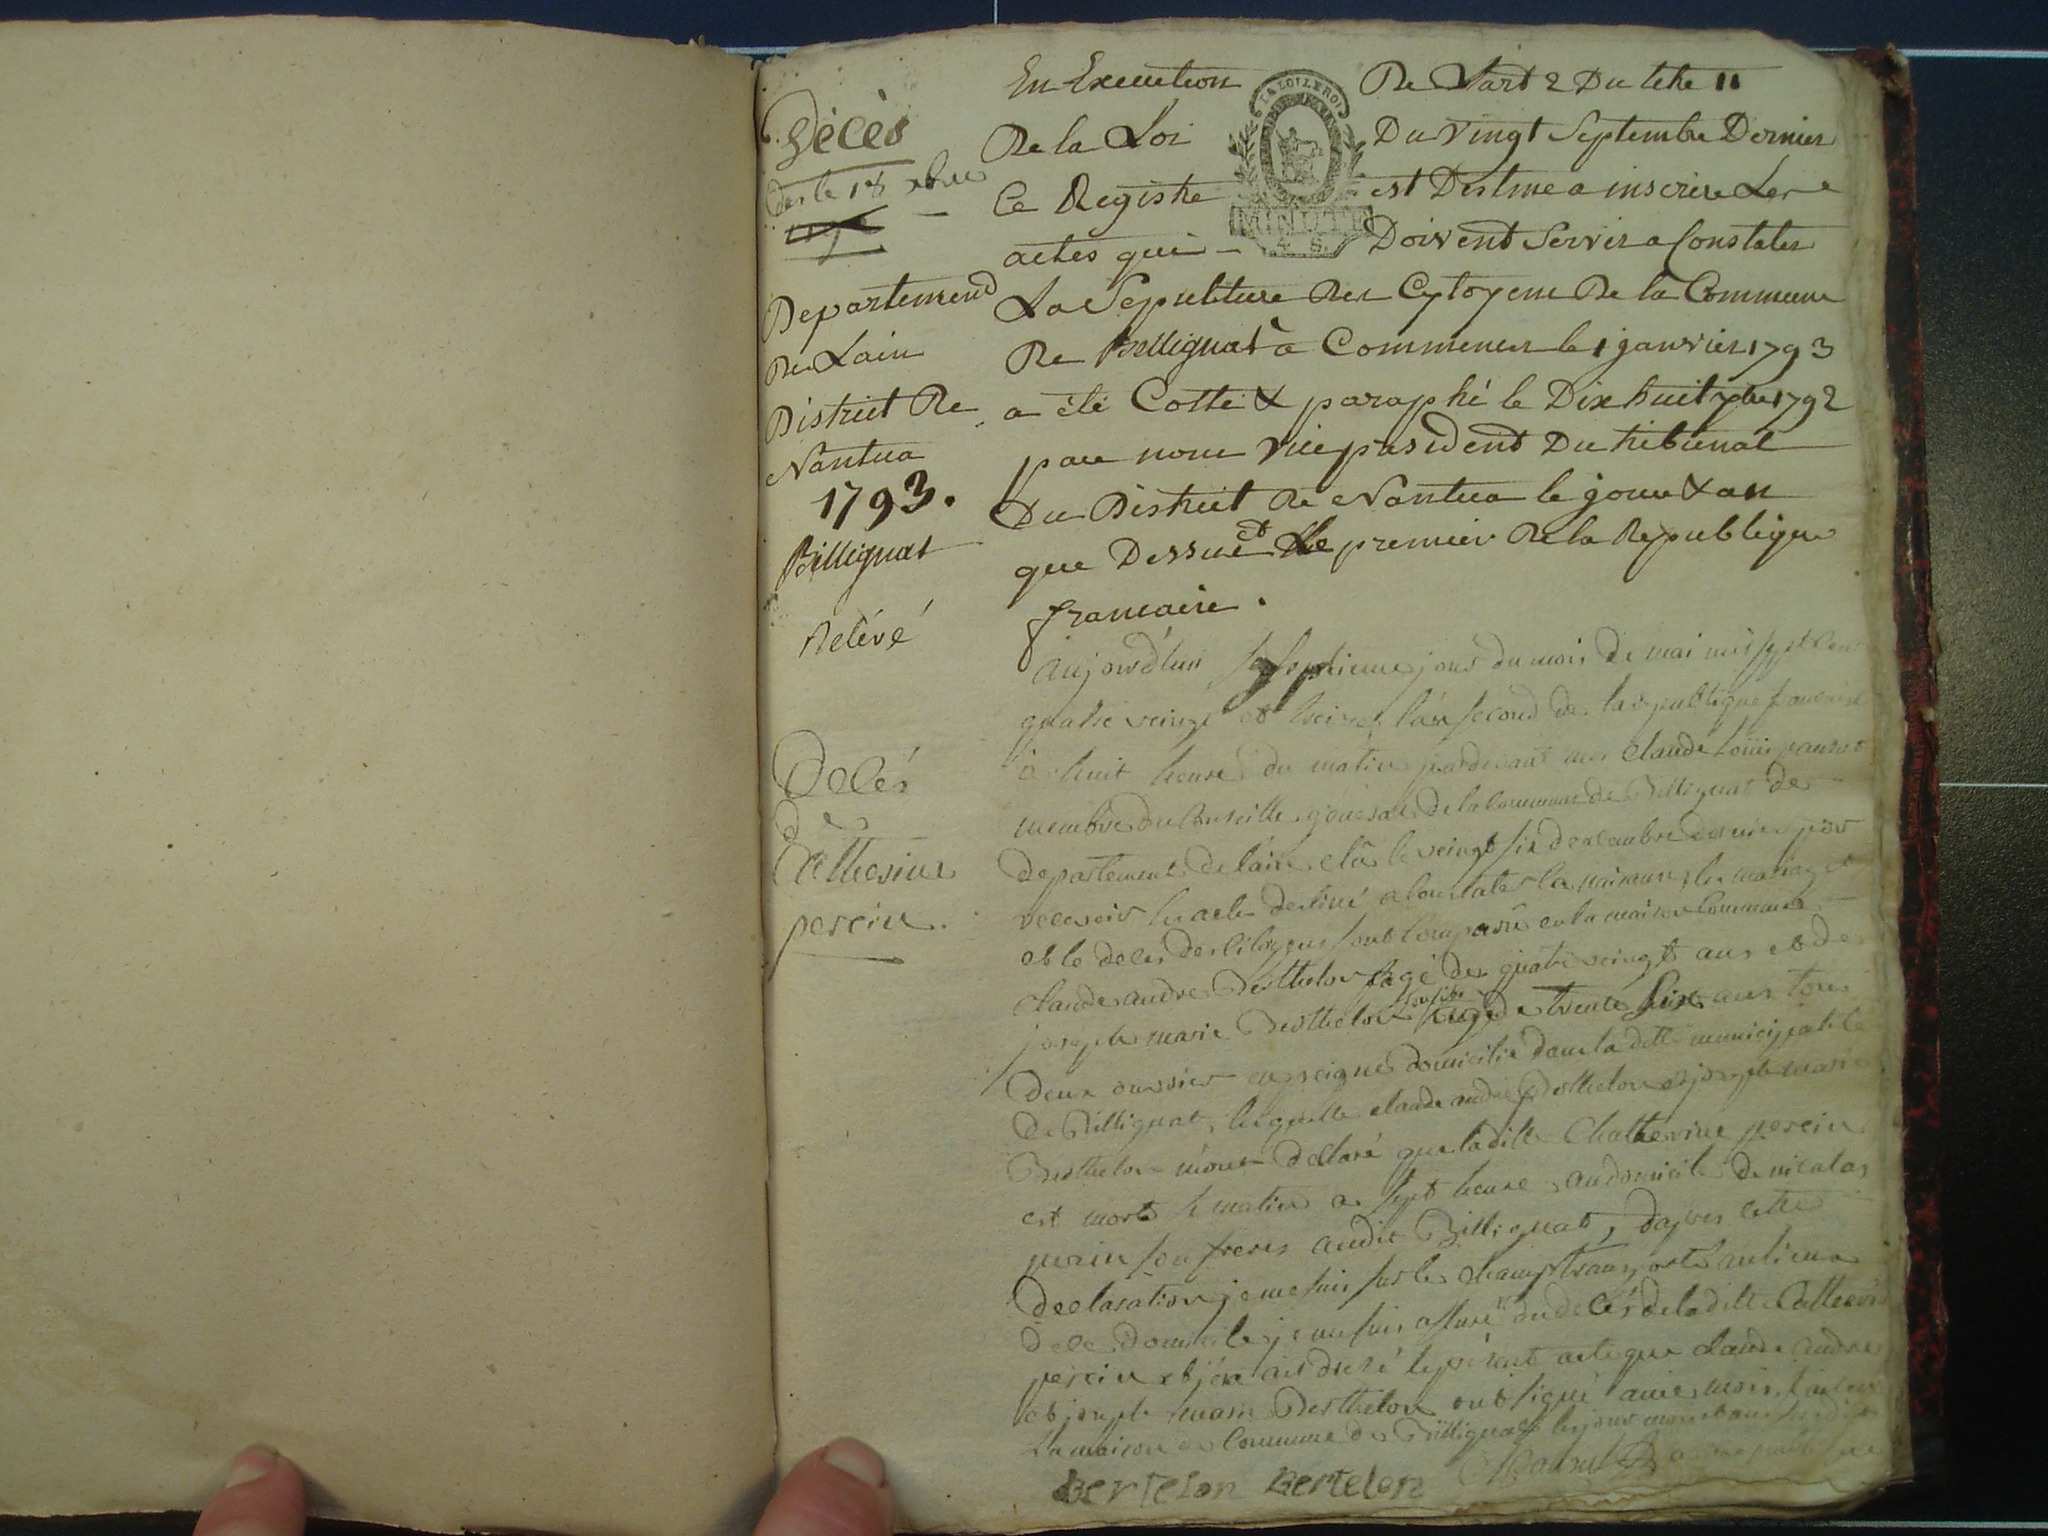 Décès
Departement
De Lain
District De
Nantua
1793.
Billignat
Relévé
En Execution De Lart 2 Du titre 11
De la Loi Du vingt Septembre Dernier
Ce Registre est Destine a inscrire Les
actes qui - Doivent Servir a Constater
La Sepulture Des Cytoyens De la Commune
De Bellignat à Commencer le 1 janvier 1793
a été Cotté & paraphé le Dix huit xbre 1792
par nous Vice president Du tribunal
Du District De Nantua le jour & an
que Dessus et Le premier De la Republique
francaise.
LA LOI LE ROI
MINUTE
4. S.
Decés
De
Catherine
perrin.
aujourd'hui septieme jour du mois de mai mil sept cent
quatre veingt et treize, l'an second de la republique francaise
à huit heure du matin pardevant moi Claude Louis
membre du Conseille general de la Commune de Billignat de
departement de lain elû le veingt six decembre dernier pour
recevoir les acte destiné a Constater la naissance, les mariages
et le deces des citoyens sont Comparû en la maison Commune
claude andre Berthelon agé de quatre veingt ans et de
joseph marie Berthelon agé de trente six ans tous
deux ouvrier en peigne domicilie dans la ditte municipalité
de Billignat, lesquelle claude andre Berthelon et joseph marie
Berthelon mont declaré que la ditte Chatherine perrin
est morte se matin a sept heure au domicile de nicolas
perrin son freres audit Billignat, dapres cette
declaration je me suis sur le champ transporté au lieux
de ce domicile je me suis assuré du decés de la ditte Catherine
perrin et j'en ait dressé le present acte que claude andre
et joseph marie Berthelon ont signé avec moi, fait en
la maison Commune de Billignat les jour mois et an susdit
Bertelon Bertelon